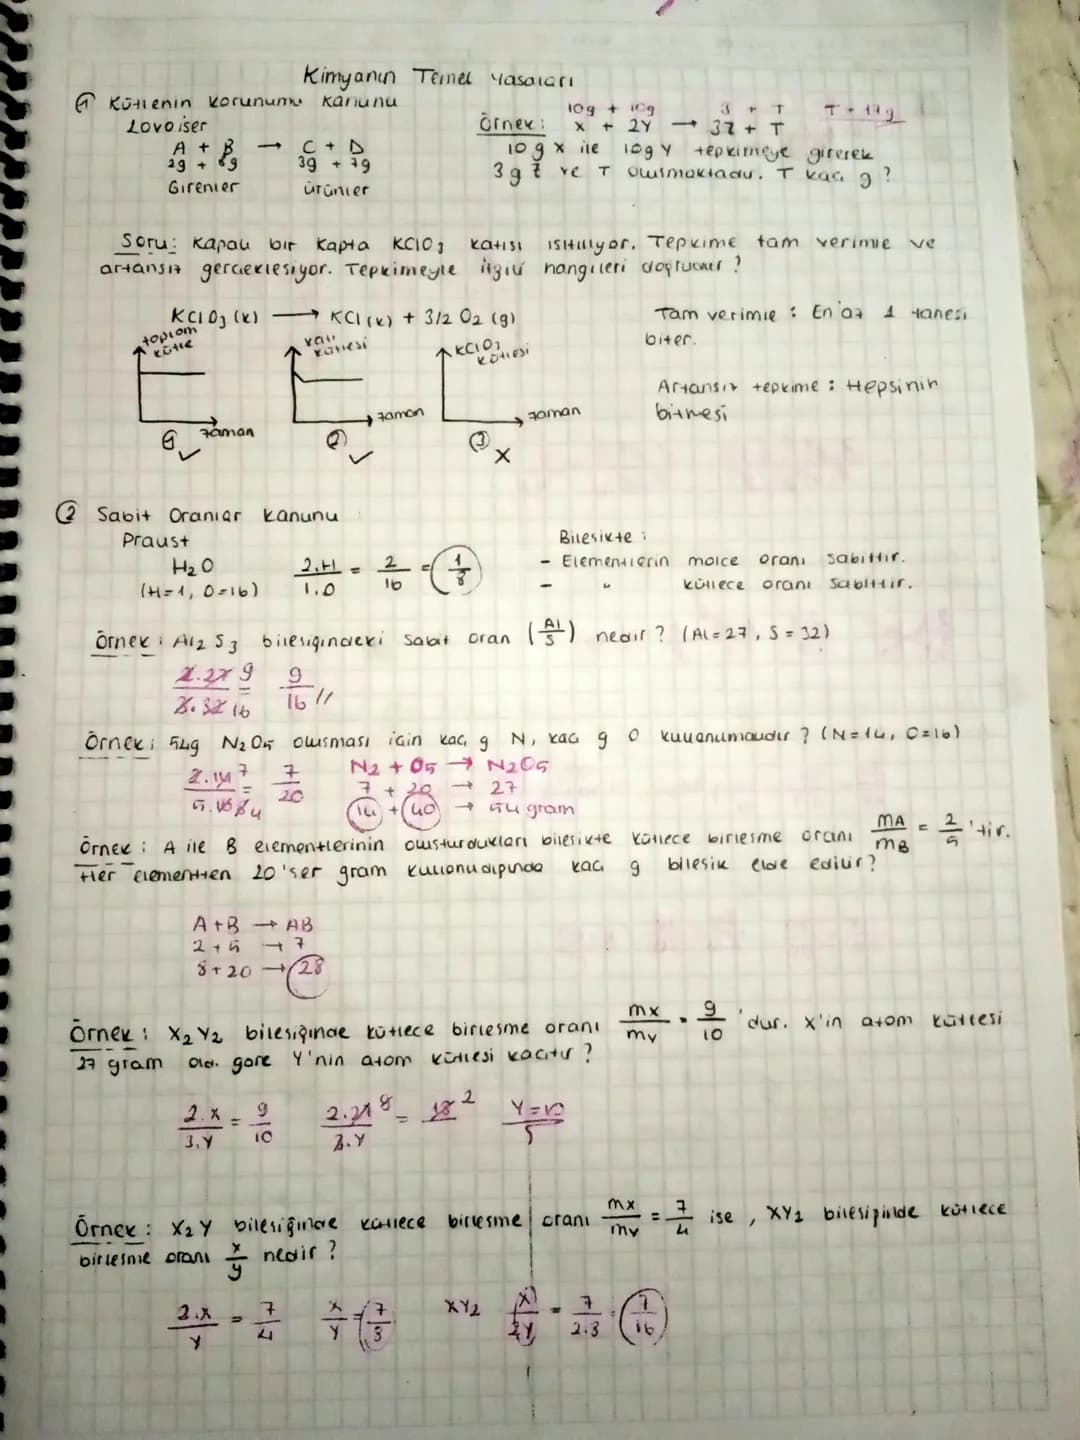 Kimyanın Temel Yasaları
① Kütlenin Korunumu Kanunu
Lovoiser
A + B → C + D
2g + 8g 3g + 7g
Girenler Ürünler
10g + 10g 3 + T T = 17g
Örnek: X + 2Y → 3Z + T
10 g X ile 10g Y tepkimeye girerek
3g Z ve T oluşmaktadır. T kaç g ?
Soru: Kapalı bir kapta KClO3 katısı ısıtılıyor. Tepkime tam verimle ve
artansız gerçekleşiyor. Tepkimeyle ilgili hangileri doğrudur ?
KClO3 (k) → KCl (k) + 3/2 O2 (g)
toplam kütle
zaman
① ✓
katı kütlesi
zaman
② ✓
KClO3 kütlesi
zaman
③ X
Tam verimle : En az 1 tanesi
biter.
Artansız tepkime : Hepsinin
bitmesi
② Sabit Oranlar Kanunu
Praust
H2O 2.H/1.O = 2/16 = 1/8
(H=1, O=16)
Bileşikte :
- Elementlerin molce oranı sabittir.
- " kütlece oranı sabittir.
Örnek : Al2S3 bileşiğindeki sabit oran (Al/S) nedir ? (Al=27, S=32)
2.27/3.32 9/16 = 9/16 //
Örnek : 54g N2O5 oluşması için kaç g N, kaç g O kullanılmalıdır ? (N=14, O=16)
2.14 7 = 7/20 N2 + O5 → N2O5
7 + 20 → 27
14 + 40 → 54 gram
Örnek : A ile B elementlerinin oluşturdukları bileşikte kütlece birleşme oranı mA/mB = 2/5 'tir.
Her elementten 20'şer gram kullanıldığında kaç g bileşik elde edilir?
A + B → AB
2 + 5 → 7
8 + 20 → 28
Örnek : X2Y2 bileşiğinde kütlece birleşme oranı mx/my = 9/10 'dur. X'in atom kütlesi
27 gram old. göre Y'nin atom kütlesi kaçtır ?
2.X/3.Y = 9/10
Örnek : X2Y bileşiğinde kütlece birleşme oranı mx/my = 7/4 ise , XY2 bileşiğinde kütlece
birleşme oranı x/y nedir ?
2.X/Y = 7/4 X/Y = 7/8 XY2 X/2Y = 7/2.8 = 7/16